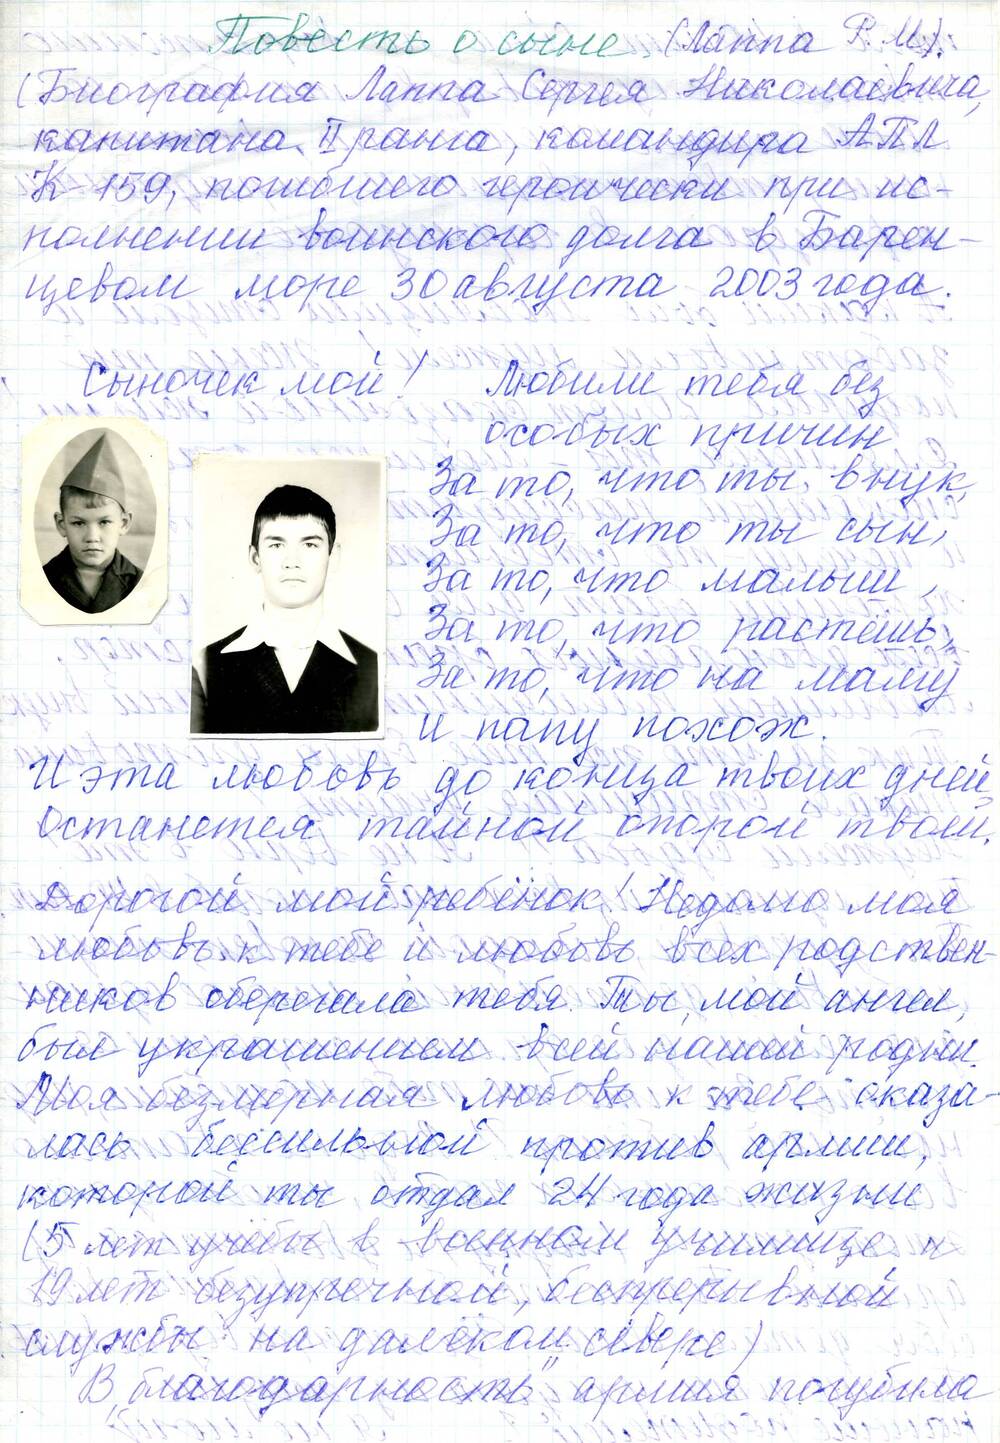 Повесть о сыне. (Лаппа Р.М).
(Биография Лаппа Сергея Николаевича,
капитана II ранга, командира АПЛ
К-159, погибшего героически при ис-
полнении воинского долга в Барен-
цевом море 30 августа 2003 года.
Сыночек мой!
Любили тебя без
особых причин
За то, что ты внук,
За то, что ты сын,
За то, что малыш,
За то, что растёшь,
За то, что на маму
и папу похож.
И эта любовь до конца твоих дней
Останется тайной опорой твоей.
Дорогой мой ребёнок! Недолго моя
любовь к тебе и любовь всех родствен-
ников оберегала тебя. Ты, мой ангел,
был украшением всей нашей родни.
Моя безмерная любовь к тебе оказа-
лась бессильной против армии,
которой ты отдал 24 года жизни
(5 лет учебы в военном училище и
19 лет безупречной, беспрерывной
службы на далёком севере)
В "благодарность" армия погубила